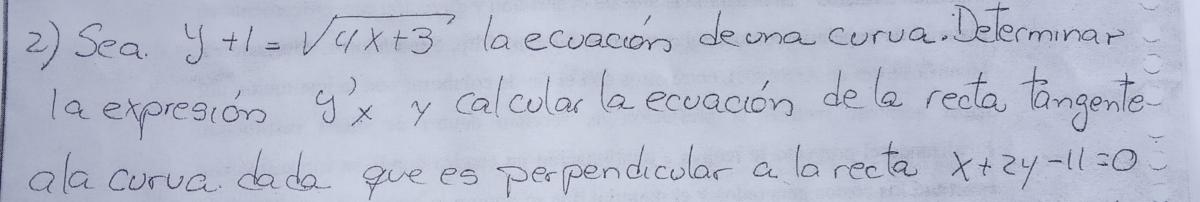 2) Sea. y + 1 = √4x+3 la ecuación de una curva. Determinar
la expresión y'x y calcular la ecuación de la recta tangente
a la curva. dada que es perpendicular a la recta x+2y-11=0